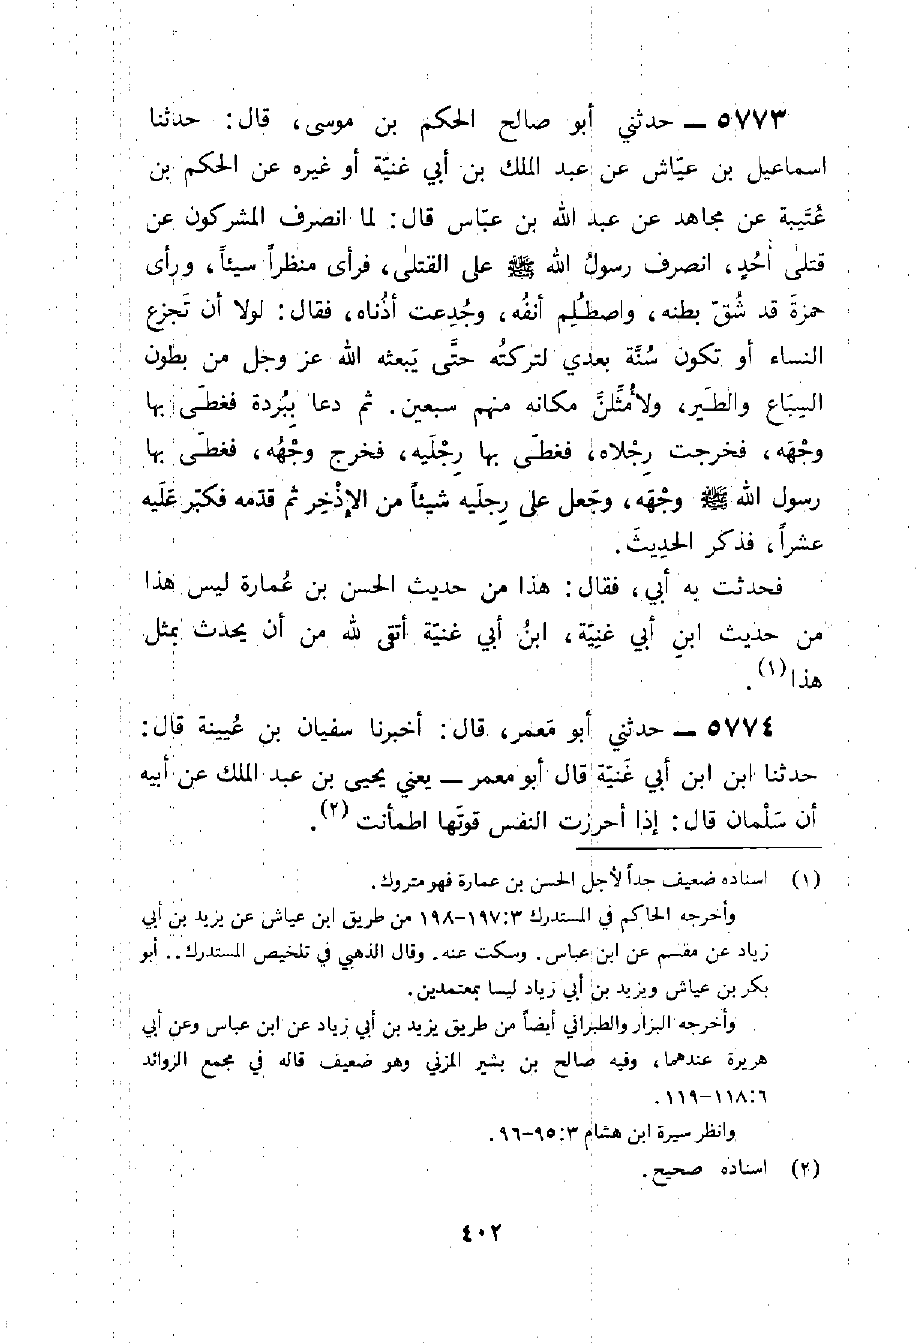 ٥٧٧٣ ــ حدثني أبو صالح الحكم بن موسى، قال: حدثنا
اسماعيل بن عيّاش عن عبد الملك بن أبي غنيّة أو غيره عن الحكم بن
عُتَيبة عن مجاهد عن عبد الله بن عبّاس قال: لما انصرف المشركون عن
قتلىٰ أُحُدٍ، انصرف رسولُ الله ﷺ على القتلىٰ، فرأى منظراً سيئاً، ورأى
حمزةَ قد شُقّ بطنه، واصطُلِم أنفُه، وجُدِعت أذُناه، فقال: لولا أن تَجزع
النساء أو تكون سُنَّة بعدي لتركتُه حتَّى يَبعثه الله عز وجل من بطون
السِبَاع والطَير، ولأُمثِّلنَّ مكانه منهم سبعين. ثم دعا بِبُردة فغطـّى بها
وجْهَه، فخرجت رِجْلاه، فغطـّى بها رِجْلَيه، فخرج وجْهُه، فغطـّى بها
رسول الله ﷺ وجْهَه، وجَعل على رِجلَيه شيئاً من الإذْخِر ثم قدّمه فكبّر عَلَيه
عشراً، فذكر الحدِيثَ.
فحدثت به أبي، فقال: هذا من حديث الحسن بن عُمارة ليس هذا
من حديث ابنِ أبي غنِيّة، ابنُ أبي غنيّة أتقى لله من أن يحدث بمثل
هذا(١).
٥٧٧٤ ــ حدثني أبو مَعمر، قال: أخبرنا سفيان بن عُيينة قال:
حدثنا ابن ابن أبي غَنيّة قال أبو معمر ــ يعني يحيى بن عبد الملك عن أبيه
أن سَلْمان قال: إذا أحرزت النفس قوتَها اطمأنت(٢).
(١) اسناده ضعيف جداً لأجل الحسن بن عمارة فهو متروك.
وأخرجه الحاكم في المستدرك ٣:١٩٧-١٩٨ من طريق ابن عياش عن يزيد بن أبي
زياد عن مقسم عن ابن عباس. وسكت عنه. وقال الذهبي في تلخيص المستدرك.. أبو
بكر بن عياش ويزيد بن أبي زياد ليسا بمعتمدين.
وأخرجه البزار والطبراني أيضاً من طريق يزيد بن أبي زياد عن ابن عباس وعن أبي
هريرة عندهما، وفيه صالح بن بشير المزني وهو ضعيف قاله في مجمع الزوائد
٦:١١٨-١١٩.
وانظر سيرة ابن هشام ٣:٩٥-٩٦.
(٢) اسناده صحيح.
٤٠٢